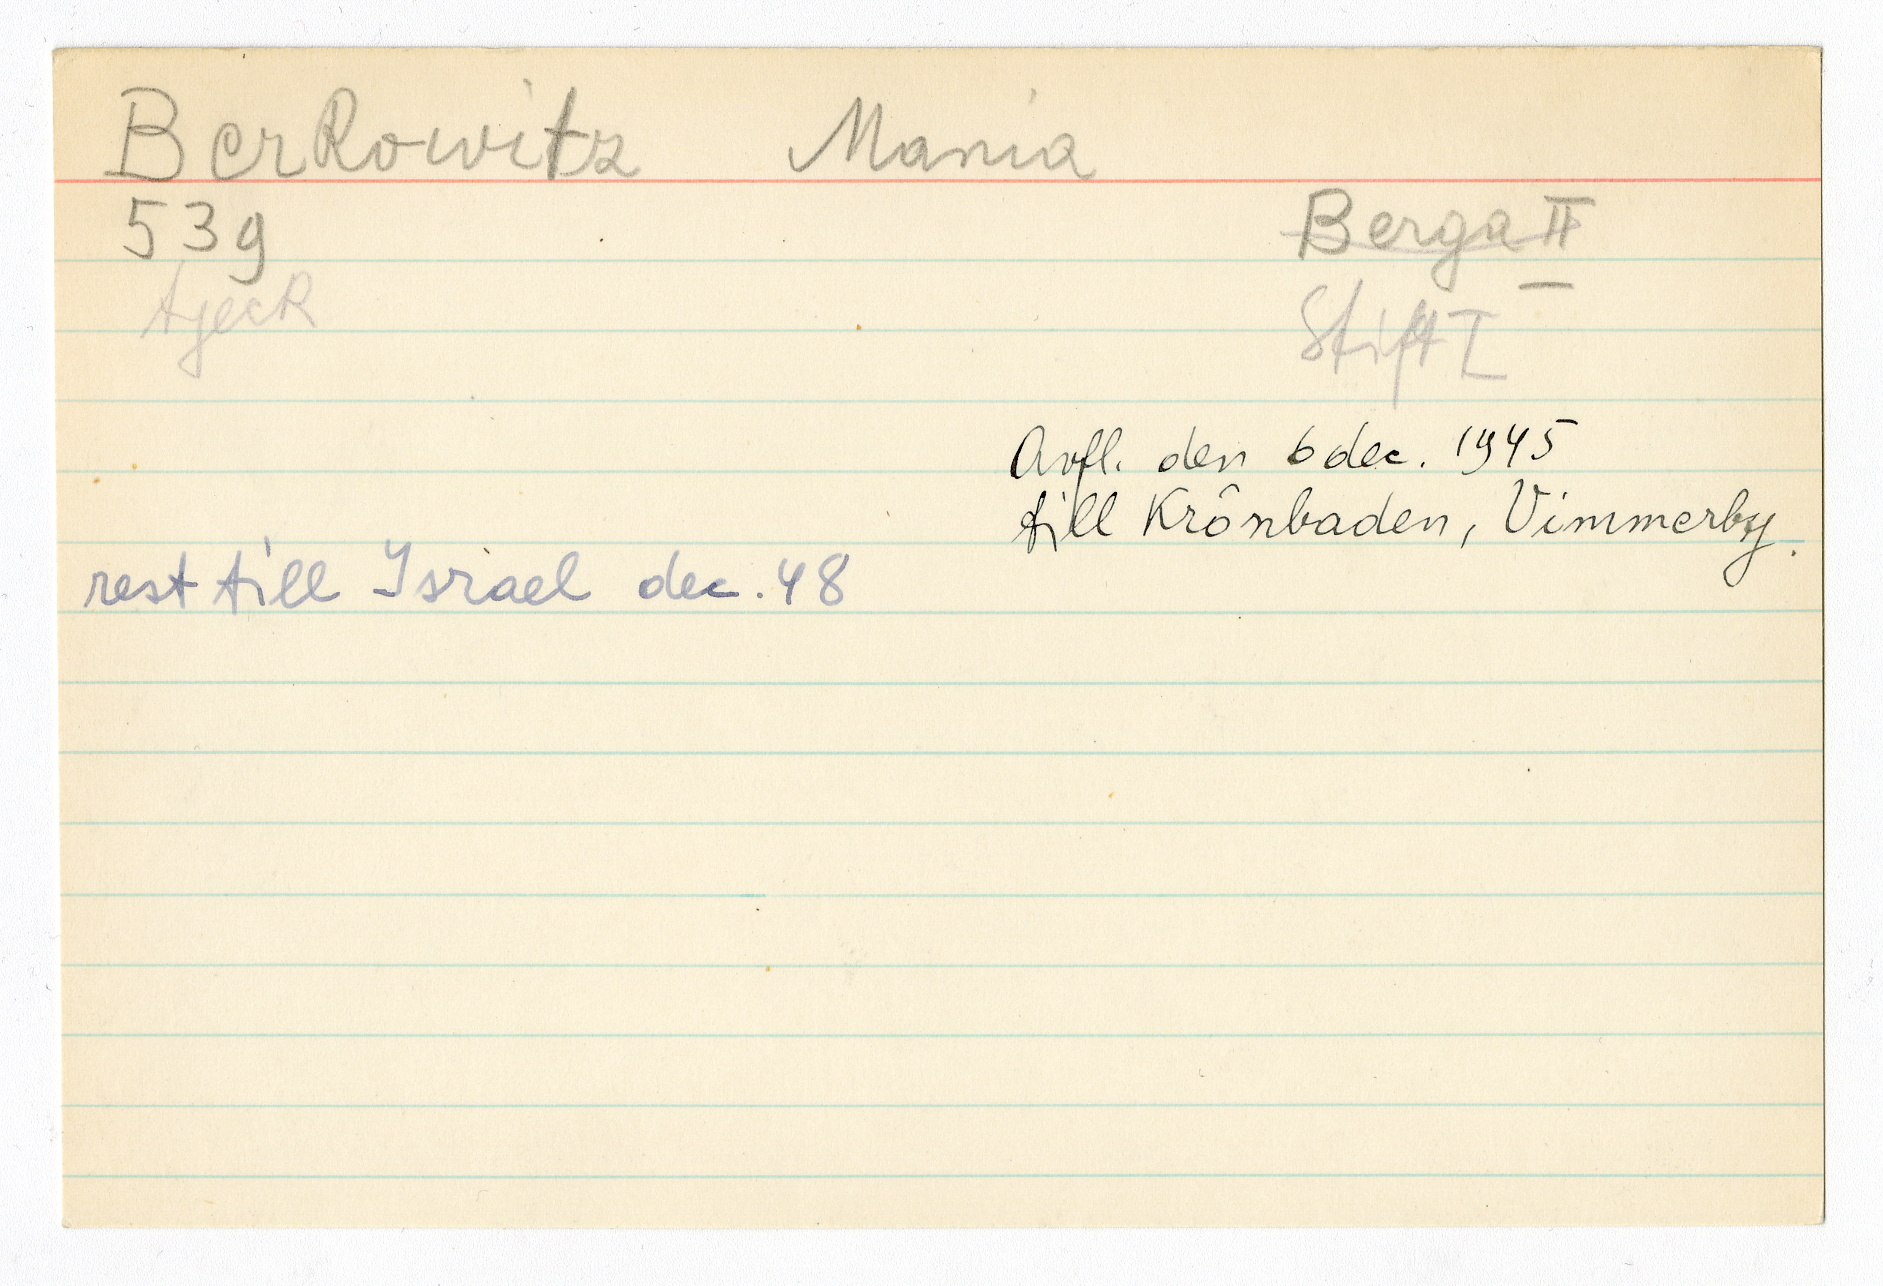 Berkowitz Mania
539 Berga II
tjeck Stift I
Avfl. den 6 dec. 1945
till Krönbaden, Vimmerby.
rest till Israel dec. 48